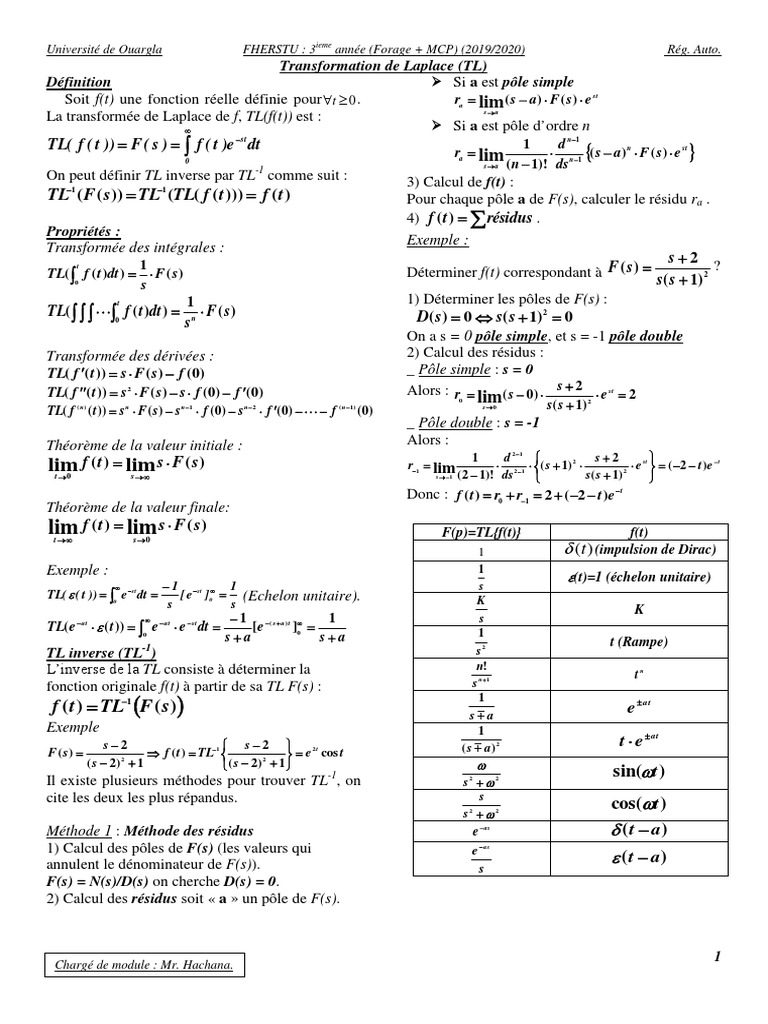 Université de Ouargla FHERSTU : 3ieme année (Forage + MCP) (2019/2020) Rég. Auto.
Transformation de Laplace (TL)
Définition
Soit f(t) une fonction réelle définie pour ∀t ≥ 0.
La transformée de Laplace de f, TL(f(t)) est :
TL( f ( t )) = F( s ) = ∫₀^∞ f ( t )e^{-st} dt
On peut définir TL inverse par TL⁻¹ comme suit :
TL⁻¹(F(s)) = TL⁻¹(TL(f(t))) = f(t)
Propriétés :
Transformée des intégrales :
TL(∫₀^t f(t)dt) = 1/s · F(s)
TL(∫∫∫⋯∫₀^t f(t)dt) = 1/sⁿ · F(s)
Transformée des dérivées :
TL(f′(t)) = s·F(s) − f(0)
TL(f″(t)) = s²·F(s) − s·f(0) − f′(0)
TL(f⁽ⁿ⁾(t)) = sⁿ·F(s) − sⁿ⁻¹·f(0) − sⁿ⁻²·f′(0) − ⋯ − f⁽ⁿ⁻¹⁾(0)
Théorème de la valeur initiale :
lim_{t→0} f(t) = lim_{s→∞} s·F(s)
Théorème de la valeur finale:
lim_{t→∞} f(t) = lim_{s→0} s·F(s)
Exemple :
TL( ε( t )) = ∫₀^∞ e^{-st} dt = −1/s [ e^{-st} ]₀^∞ = 1/s (Echelon unitaire).
TL(e^{-at}·ε(t)) = ∫₀^∞ e^{-at}·e^{-st} dt = −1/(s+a) [e^{-(s+a)t}]₀^∞ = 1/(s+a)
TL inverse (TL⁻¹)
L'inverse de la TL consiste à déterminer la
fonction originale f(t) à partir de sa TL F(s) :
f(t) = TL⁻¹(F(s))
Exemple
F(s) = (s−2)/((s−2)²+1) ⇒ f(t) = TL⁻¹{(s−2)/((s−2)²+1)} = e^{2t} cos t
Il existe plusieurs méthodes pour trouver TL⁻¹, on
cite les deux les plus répandus.
Méthode 1 : Méthode des résidus
1) Calcul des pôles de F(s) (les valeurs qui
annulent le dénominateur de F(s)).
F(s) = N(s)/D(s) on cherche D(s) = 0.
2) Calcul des résidus soit « a » un pôle de F(s).
➢ Si a est pôle simple
r_a = lim_{s→a} (s−a)·F(s)·e^{st}
➢ Si a est pôle d'ordre n
r_a = lim_{s→a} 1/(n−1)! · d^{n−1}/ds^{n−1} {(s−a)ⁿ·F(s)·e^{st}}
3) Calcul de f(t) :
Pour chaque pôle a de F(s), calculer le résidu r_a .
4) f(t) = ∑résidus .
Exemple :
Déterminer f(t) correspondant à F(s) = (s+2)/(s(s+1)²) ?
1) Déterminer les pôles de F(s) :
D(s) = 0 ⇔ s(s+1)² = 0
On a s = 0 pôle simple, et s = -1 pôle double
2) Calcul des résidus :
_ Pôle simple : s = 0
Alors : r₀ = lim_{s→0} (s−0)·(s+2)/(s(s+1)²)·e^{st} = 2
_ Pôle double : s = -1
Alors :
r₋₁ = lim_{s→−1} 1/(2−1)! · d^{2−1}/ds^{2−1} · {(s+1)²·(s+2)/(s(s+1)²)·e^{st}} = (−2−t)e^{−t}
Donc : f(t) = r₀ + r₋₁ = 2 + (−2−t)e^{−t}
F(p)=TL{f(t)} f(t)
1 δ(t) (impulsion de Dirac)
1/s ε(t)=1 (échelon unitaire)
K/s K
1/s² t (Rampe)
n!/s^{n+1} tⁿ
1/(s∓a) e^{±at}
1/(s∓a)² t·e^{±at}
ω/(s²+ω²) sin(ωt)
s/(s²+ω²) cos(ωt)
e^{−as} δ(t−a)
e^{−as}/s ε(t−a)
Chargé de module : Mr. Hachana.
1